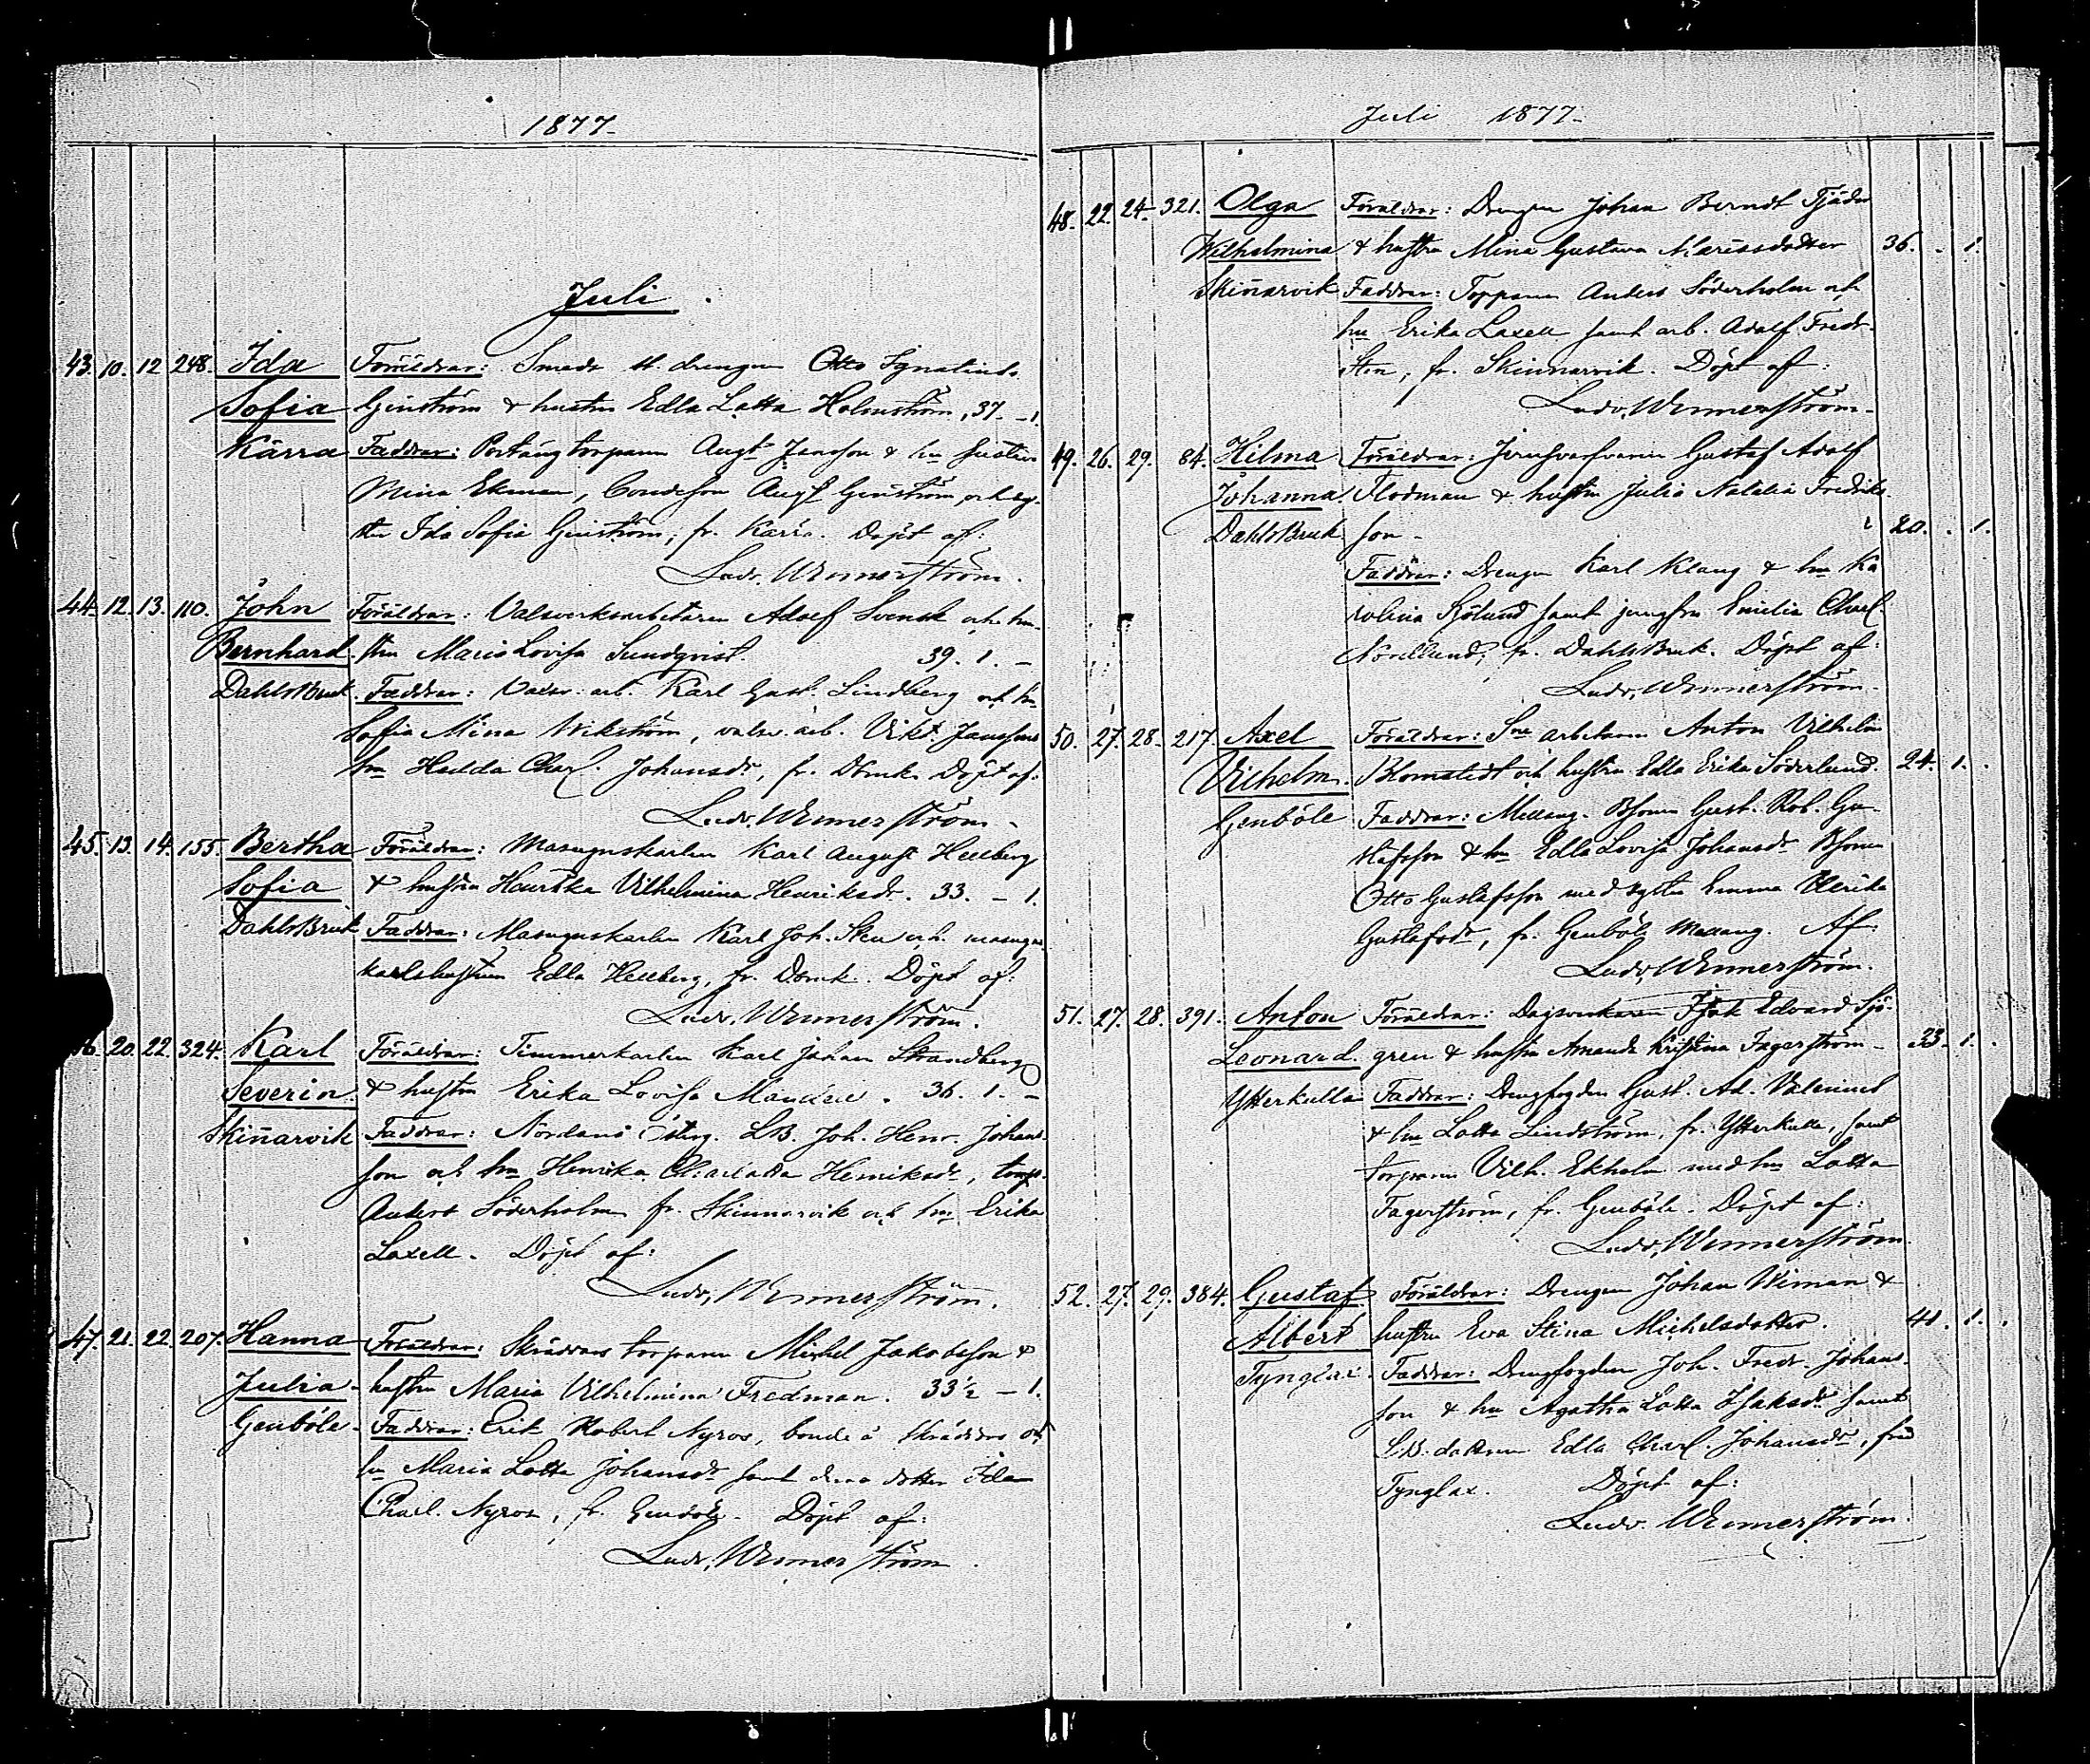 1877.
Juli.
43. 10. 12. 248. Ida Föräldrar: Smeds drengen Otto Ignatius
Sofia Ginström & hustru Edla Lotta Holmström, 37. - 1.
Kärra Faddrar: torparen Aug:t Jansson & hu Gustava
Mina Ekman, Augt Ginström, och sy-
ster Ida Sofia Ginström, fr. Kärra. Döpt af:
Ludv. Wennerström.
44. 12. 13. 110. John Föräldrar: Valsverksarbetaren Adolf Svensk och hu-
Bernhard. stru Maria Lovisa Sundqvist. 39. 1. -
DahlsBruk. Faddrar: Valsv. arb. Karl Gust. Lindberg och hu
Sofia Mina Wikström, valsv. arb. Vikt. Janssons
hu Hedda Charl. Johansdr, fr. Döpt af:
Ludv. Wennerström.
45. 13. 14. 155. Bertha Föräldrar: Masugnskarlen Karl August Hellberg
Sofia & hustru Henrika Vilhelmina Henriksdr. 33. - 1.
DahlsBruk Faddrar: Masugnskarlen Karl Joh. Sten och masugns-
karlshustrun Edla Hellberg, fr. Döpt af:
Ludv. Wennerström.
46. 20. 22. 324. Karl Föräldrar: Timmerkarlen Karl Johan Strandberg
Severin. & hustru Erika Lovisa 36. 1. -
Skinarvik Faddrar: Nordanå LB. Joh. Henr. Johans-
son och hu Henrika Charlotta Henriksdr, torp.
Anders Söderholm fr. Skinnarvik och hu Erika
Laxell. Döpt af:
Ludv. Wennerström.
47. 21. 22. 207. Hanna Föräldrar: Skräddars torparen Michel Jakobsson &
Julia hustru Maria Vilhelmina Fredman. 33½ - 1.
Genböle. Faddrar: Erik Robert Nyros, bonde å Skräddars och
hu Maria Lotta Johansdr samt deras dotter Ida
Charl. Nyros, fr. Genböle. Döpt af:
Ludv. Wennerström.
Juli 1877.
48. 22. 24. 321. Olga Föräldrar: Drengen Johan Berndt Tjäder
Wilhelmina & hustru Mina Gustava 36. . 1.
Skinarvik Faddrar: Torparen Anders Söderholm och
hu Erika Laxell samt arb. Adolf Fredr.
Sten, fr. Skinnarvik. Döpt af:
Ludv. Wennerström.
49. 26. 29. 84. Hilma Föräldrar: Gustaf Adolf
Johanna. Flodman & hustru Julia Natalia Fredriks-
DahlsBruk son. 20. . 1.
Faddrar: Drengen Karl Klang & hu Ka
rolina Sjölund samt jungfru Emilia Charl.
fr. DahlsBruk. Döpt af:
Ludv. Wennerström.
50. 27. 28. 217. Axel Föräldrar: arbetaren Anton Vilhelm
Vilhelm. Blomstedt och hustru Edla Erika Söderlund. 24. 1. .
Genböle Faddrar: Mellang. Bsonen Gust. Rob. Gu-
stafsson & hu Edla Lovisa Johansdr Bsonen
Otto Gustafsson med syster Emma Ulrika
Gustafsdr, fr. Genböle Mellang. Af
Ludv. Wennerström.
51. 27. 28. 391. Anton Föräldrar: Dagsverkaren Isak Edvard Sjö-
Leonard. gren & hustru Amanda Kristina Fagerström. 33. 1. .
Ytterkulla Faddrar: Drengfogden Gust. Ad. Valenius
& hu Lotta Lindström, fr. Ytterkulla, samt
torparen Vilh. Ekholm med hu Lotta
Fagerström, fr. Genböle. Döpt af:
Ludv. Wennerström.
52. 27. 29. 384. Gustaf Föräldrar: Drengen Johan Wiman &
Albert hustru Eva Stina Michelsdotter. 41. 1. .
Tynglax. Faddrar: Drengfogden Joh. Fredr. Johans-
son & hu Agatha Lotta Isaksdr samt
L.B. dottern Edla Charl. Johansdr, från
Tynglax. Döpt af:
Ludv. Wennerström.